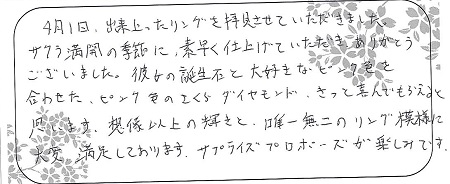 4月1日、出来上ったリングを拝見させていただきました。
サクラ満開の季節に、素早く仕上げていただきありがとう
ございました。彼女の誕生石と大好きなピンク色を
合わせた、ピンク色のさくらダイヤモンド、きっと喜んでもらえると
思います。想像以上の輝きと、唯一無二のリング模様に
大変、満足しております。サプライズプロポーズが楽しみです。